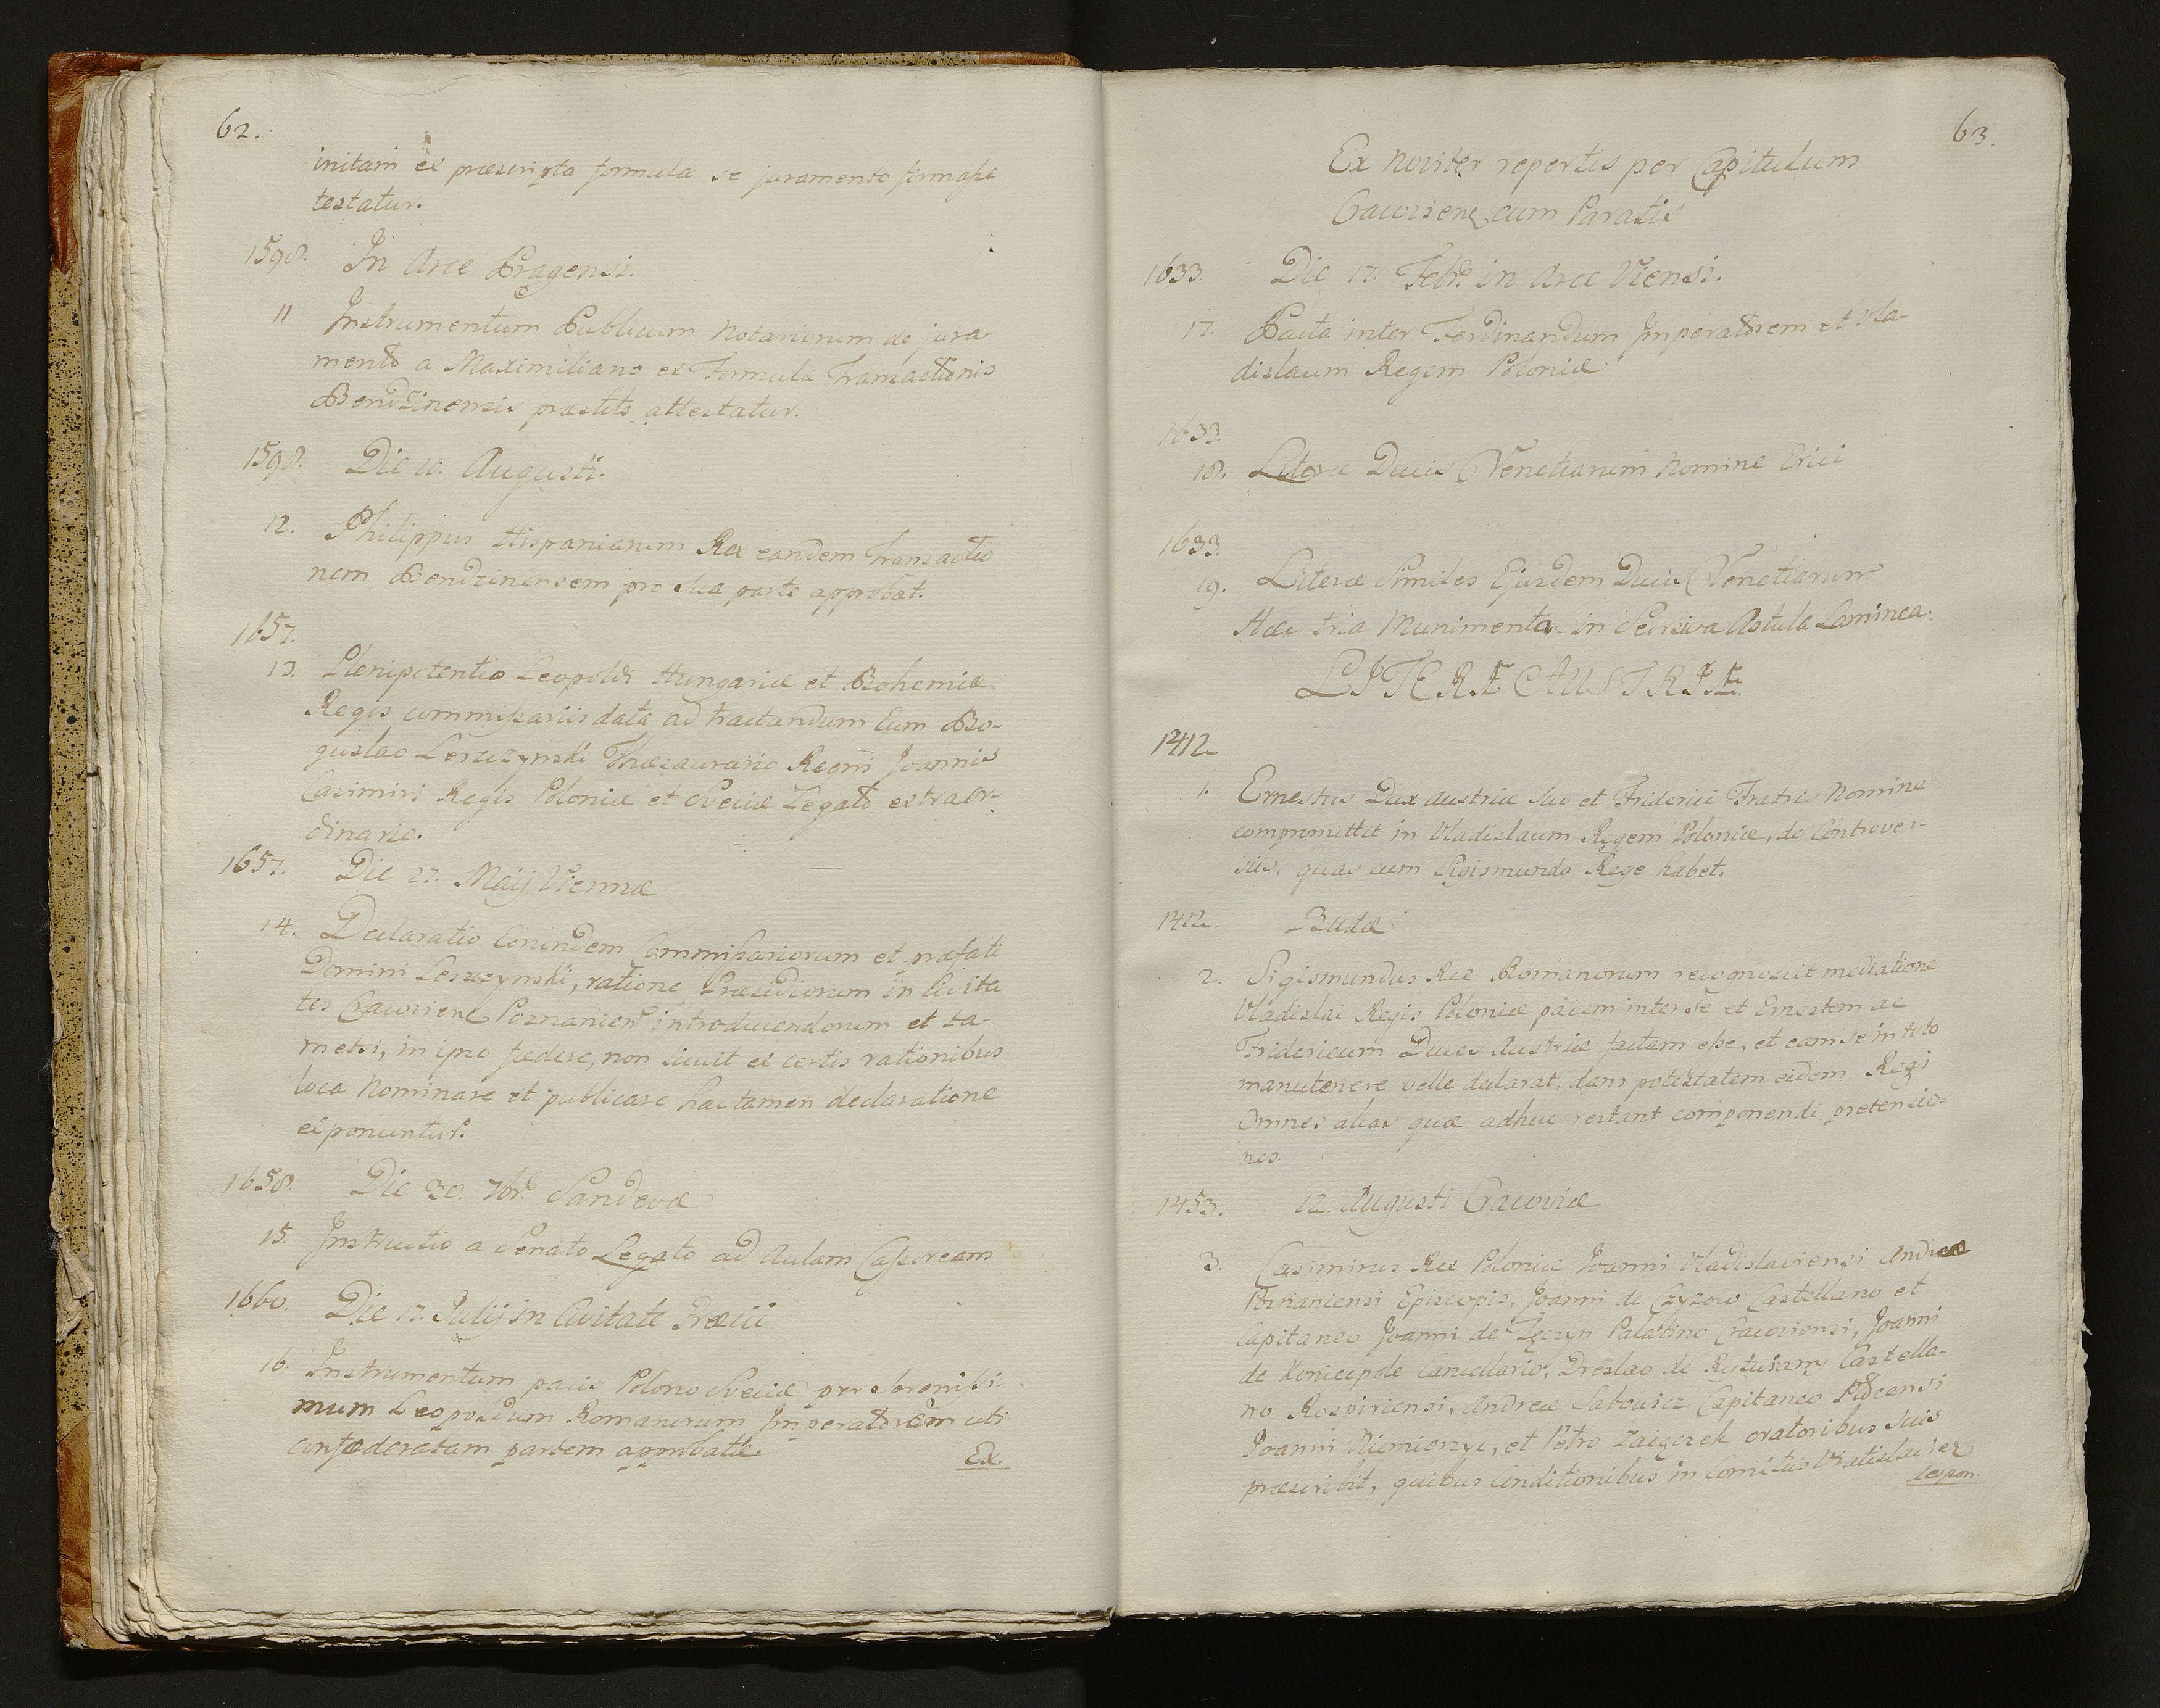 62.
initam ex præscripta formula se juramento firmaſse
testatur.
1598. In Arce Pragensi.
11 Instrumentum Publicum Notariorum de jura
mento a Maximiliano ex Formula Transactionis
Bendzinensis præstito attestatur.
1598. Die 10. Augusti.
12. Philippus Hispaniarum Rex eandem Transactio
nem Bendzinensem pro sua parte approbat.
1657.
13. Plenipotentio Leopoldi Hungariæ et Bohemiæ
Regis commiſsariis data ad tractandum cum Bo-
guslao Leszczynski Thæsaurario Regni Joannis
Casimiri Regis Poloniæ et Sveciæ Legato extraor-
dinario.
1657. Die 27. Maij Viennæ
14. Declaratio Eorundem Commiſsariorum et præfati
Domini Leszczynski, ratione Præsidiorum in Civita
tes Cracovien Poznanien introducendorum et ta-
metsi, in ipso fædere, non licuit ex certis rationibus
loca Nominare et publicare hac tamen declaratione
exponuntur.
1658. Die 30. 7br. Sandevæ
15. Instructio a Senato Legato ad Aulam Cæsoream
1660. Die 17. Julij in Civitate
16. Instrumentum pacis Polono Sveciæ per sereniſsi-
mum Leopoldum Romanorum Imperatorem uti
confæderatam partem approbatæ.
Ex
63.
Ex Noviter repertis per Capitulum
Cracovien, cum Paratis
1633. Die 17. Febr. in Arce Viensi.
17. Pacta inter Ferdinandum Imperatorem et Vla-
dislaum Regem Poloniæ
1633.
18. Literæ Ducis Venetiarum Nomine Erici
1633.
19. Literæ Similes Ejusdem Ducis Venetiarum
Hæc tria Munimenta in Seorsiva Astula Laminea.
LITERÆ AUSTRIÆ.
1412
1. Ernestus Dux Austriæ suo et Friderici Fratris Nomine
compromittit in Vladislaum Regem Poloniæ, de Controver-
siis, quas cum Sigismundo Rege habet.
1412. Budæ
2. Sigismundus Rex Romanorum recognoscit mediatione
Vladislai Regis Poloniæ pacem inter se et Ernestem ac
Fridericum Duces Austriæ factam eſse, et eam se in toto
manutenere velle declarat, dans potestatem eidem Regi
omnes alias quæ adhuc restant componendi pretensio-
nes.
1453. 12. Augusti Cracoviæ
3. Casimirus Rex Poloniæ Joanni Vladislaviensi Andreæ
Poznaniensi Episcopis, Joanni de Czyzow Castellano et
Capitaneo Joanni de Tęczyn Palatino Cracoviensi, Joanni
de Koniecpole Cancellario, Dreslao de Rytwiany Castella-
no Rospiriensi, Andreæ Sabowicz Capitaneo
Joanni Niemierzyc, et Petro Zaięczek oratoribus suis
præscribit, quibus Conditionibus in Comitiis Vratislaviex
despon.